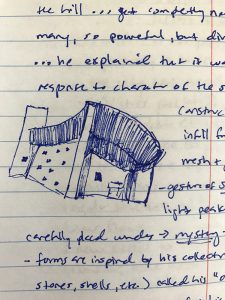 the hill ... get completely na
many, so powerful, but div
... he explained that it wa
response to character of the s
construc
infill f
mesh +
- gesture of s
light, posi
carefully placed under → mystery
- forms are inspired by his collecti
stones, shells, etc.) called his "o